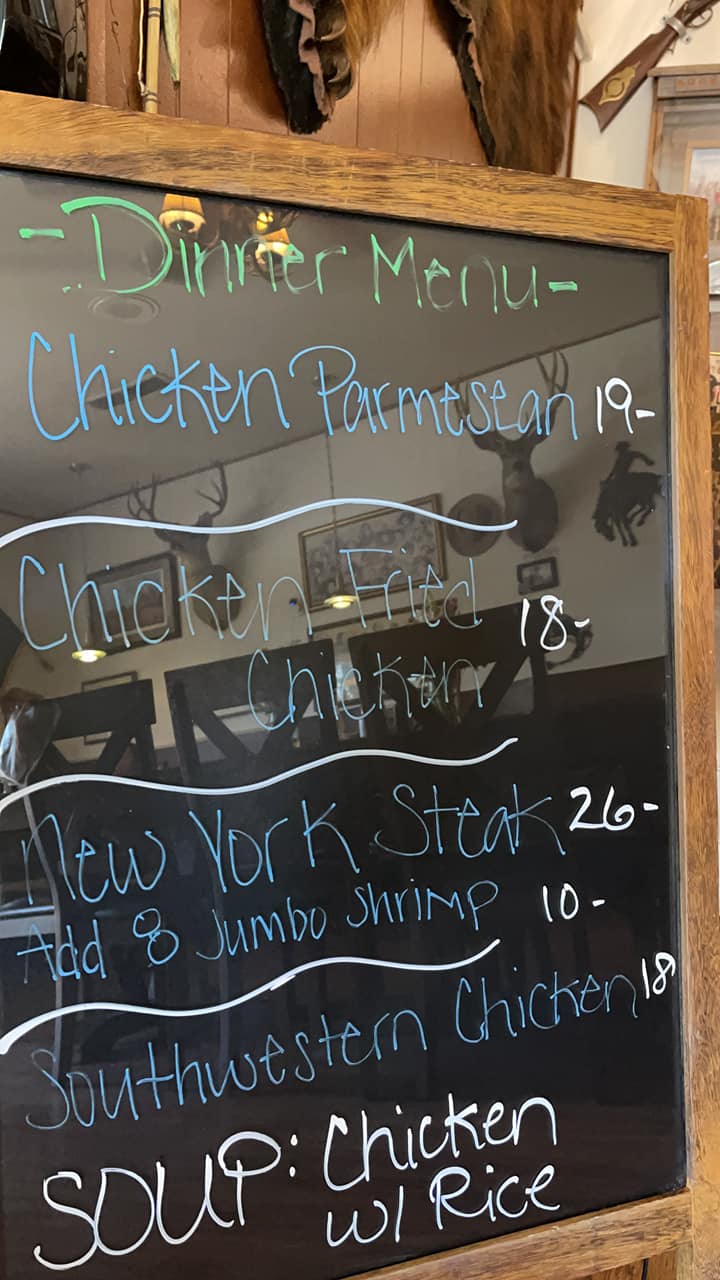 -Dinner Menu-
Chicken Parmesean 19-
Chicken Fried 18-
Chicken
New York Steak 26-
Add 8 Jumbo Shrimp 10-
Southwestern Chicken 18
SOUP: Chicken
w/ Rice